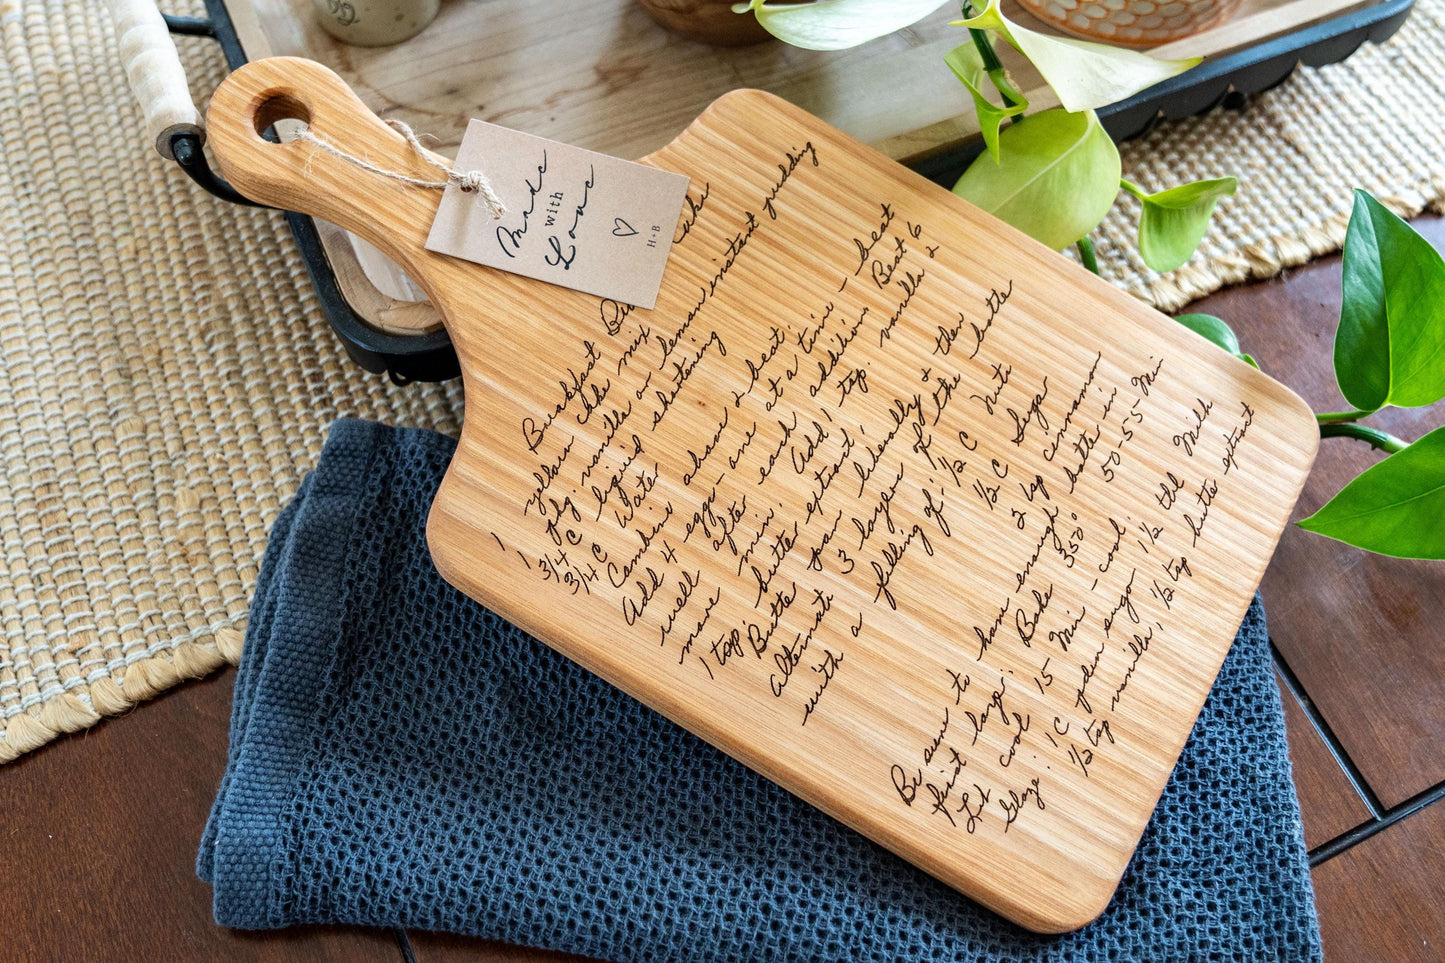 Made
with
Love
H+B
Breakfast Cake
1 yellow cake mix
1 pkg. vanilla or lemon instant pudding
3/4 C liquid shortening
3/4 C Water
Combine above & beat.
Add 4 eggs - one at a time - beat
well after each addition Beat 6
more min. Add 1 tsp. vanilla &
1 tsp. butter extract.
Butter pan liberally & then
alternate 3 layers of the batter
with a filling of: 1/2 C Nuts
1/2 C Sugar
2 tsp cinnamon
Be sure to have enough batter in
first layer. Bake 350° 50-55 Min
Let cool 15 Min - cool.
Glaze: 1 C sugar 1 1/2 tbl Milk
1/2 tsp vanilla, 1/2 tsp butter extract